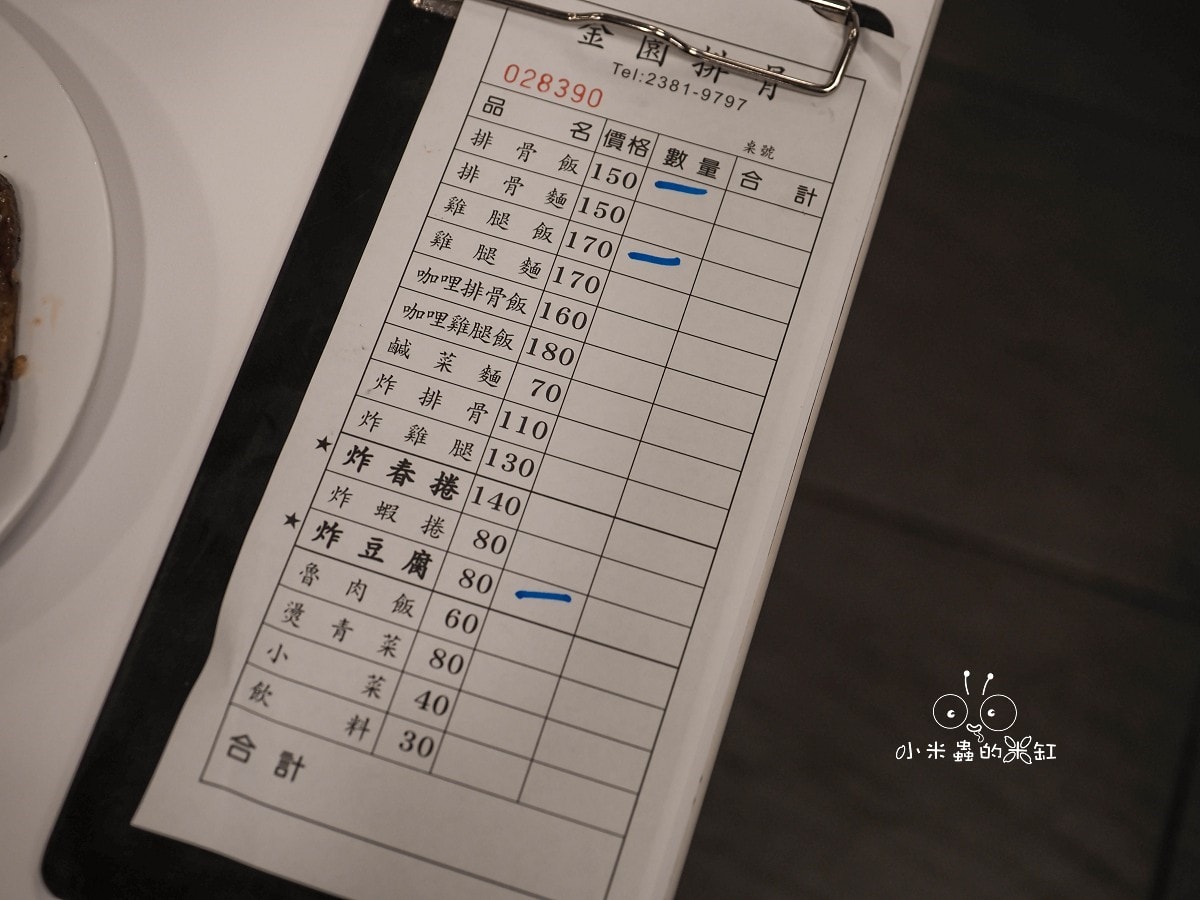 金園排骨
Tel:2381-9797
028390
桌號
品名 價格 數量 合計
排骨飯 150 一
排骨麵 150
雞腿飯 170 一
雞腿麵 170
咖哩排骨飯 160
咖哩雞腿飯 180
鹹菜麵 70
炸排骨 110
炸雞腿 130
★ 炸春捲 140
炸蝦捲 80
★ 炸豆腐 80 一
魯肉飯 60
燙青菜 80
小菜 40
飲料 30
合計
小米蟲的米缸